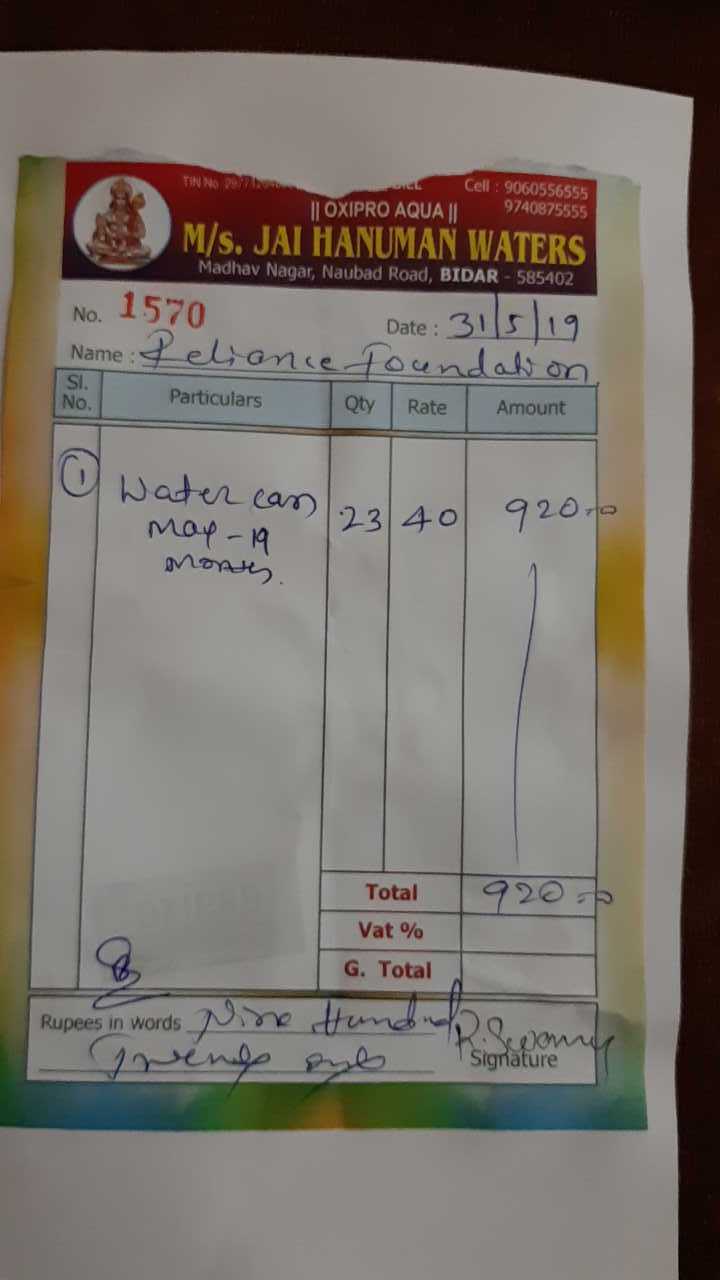 TIN No
Cell : 9060556555
9740875555
|| OXIPRO AQUA ||
M/s. JAI HANUMAN WATERS
Madhav Nagar, Naubad Road, BIDAR - 585402
No. 1570
Date : 31/5/19
Name : Reliance Foundation
Sl. No. Particulars Qty Rate Amount
1 Water can 23 40 920=00
May-19
Months.
Total 920=00
Vat %
G. Total
Rupees in words Nine Hundred
Twenty only
R. Swamy
Signature